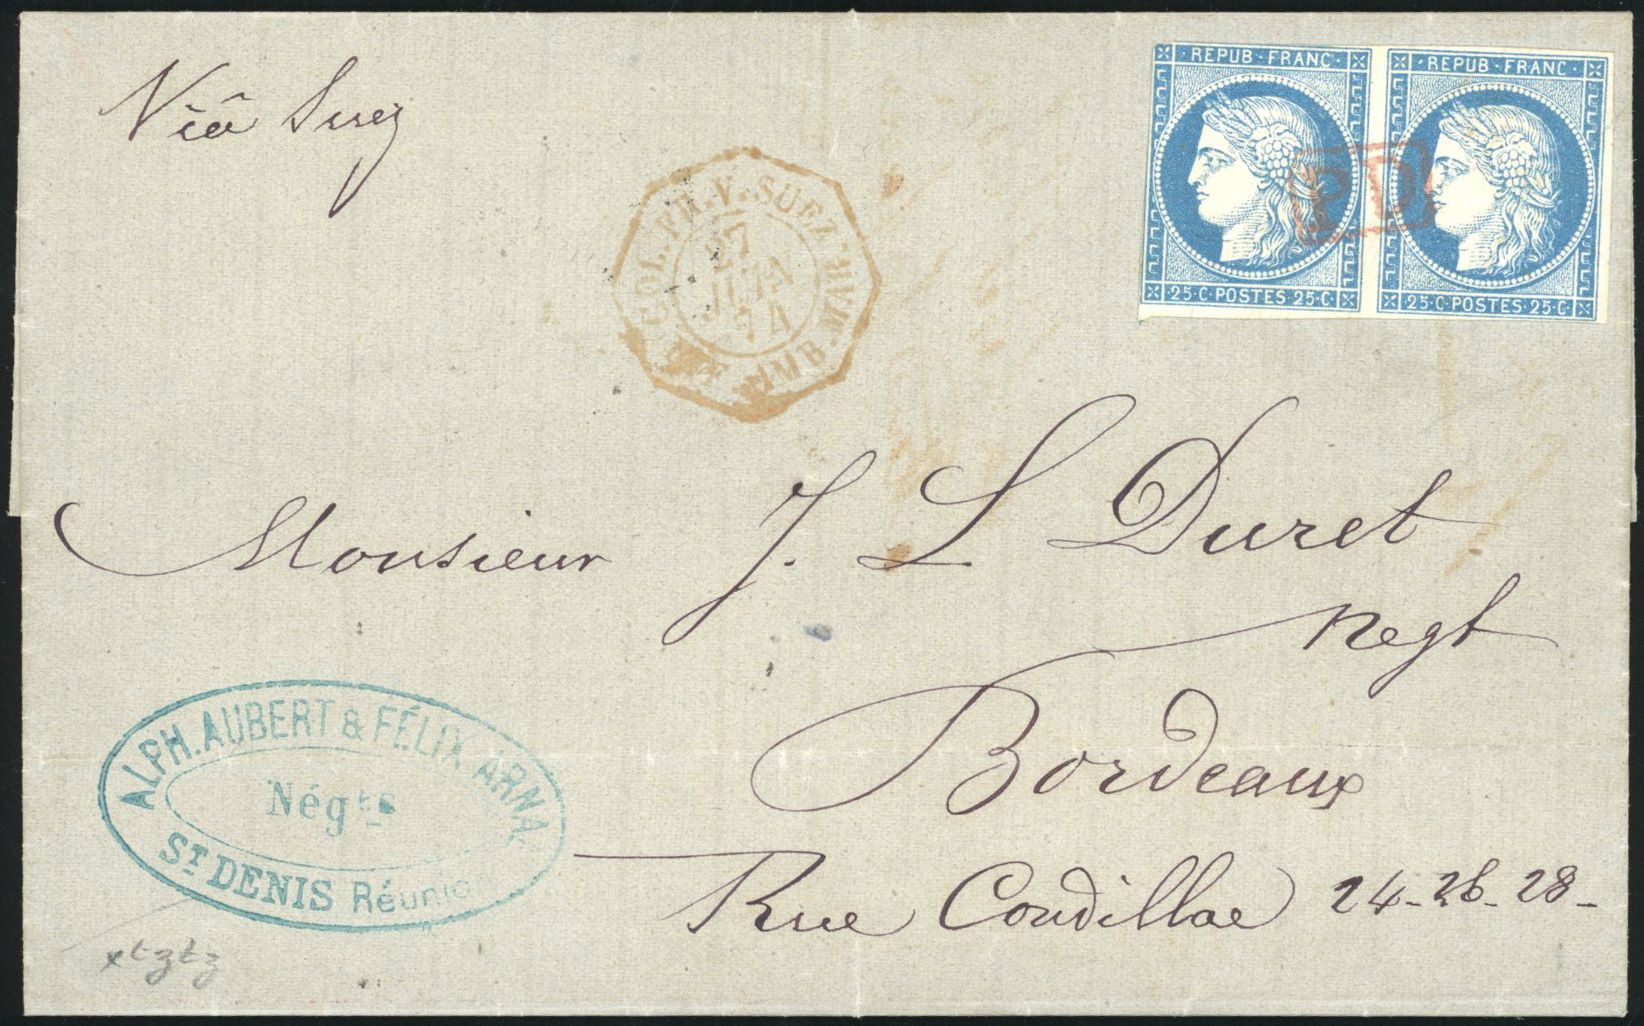 Viâ Suez
REPUB · FRANC ·
25 · C · POSTES · 25 · C ·
· REPUB · FRANC ·
25 · C · POSTES · 25 · C ·
PD
COL. FR. V. SUEZ AMB.
27
JUIN
74
Monsieur J. L Duret
Negt
Bordeaux
Rue Condillac 24-26-28-
ALPH. AUBERT & FÉLIX ARNA
Négts
ST DENIS Réunion